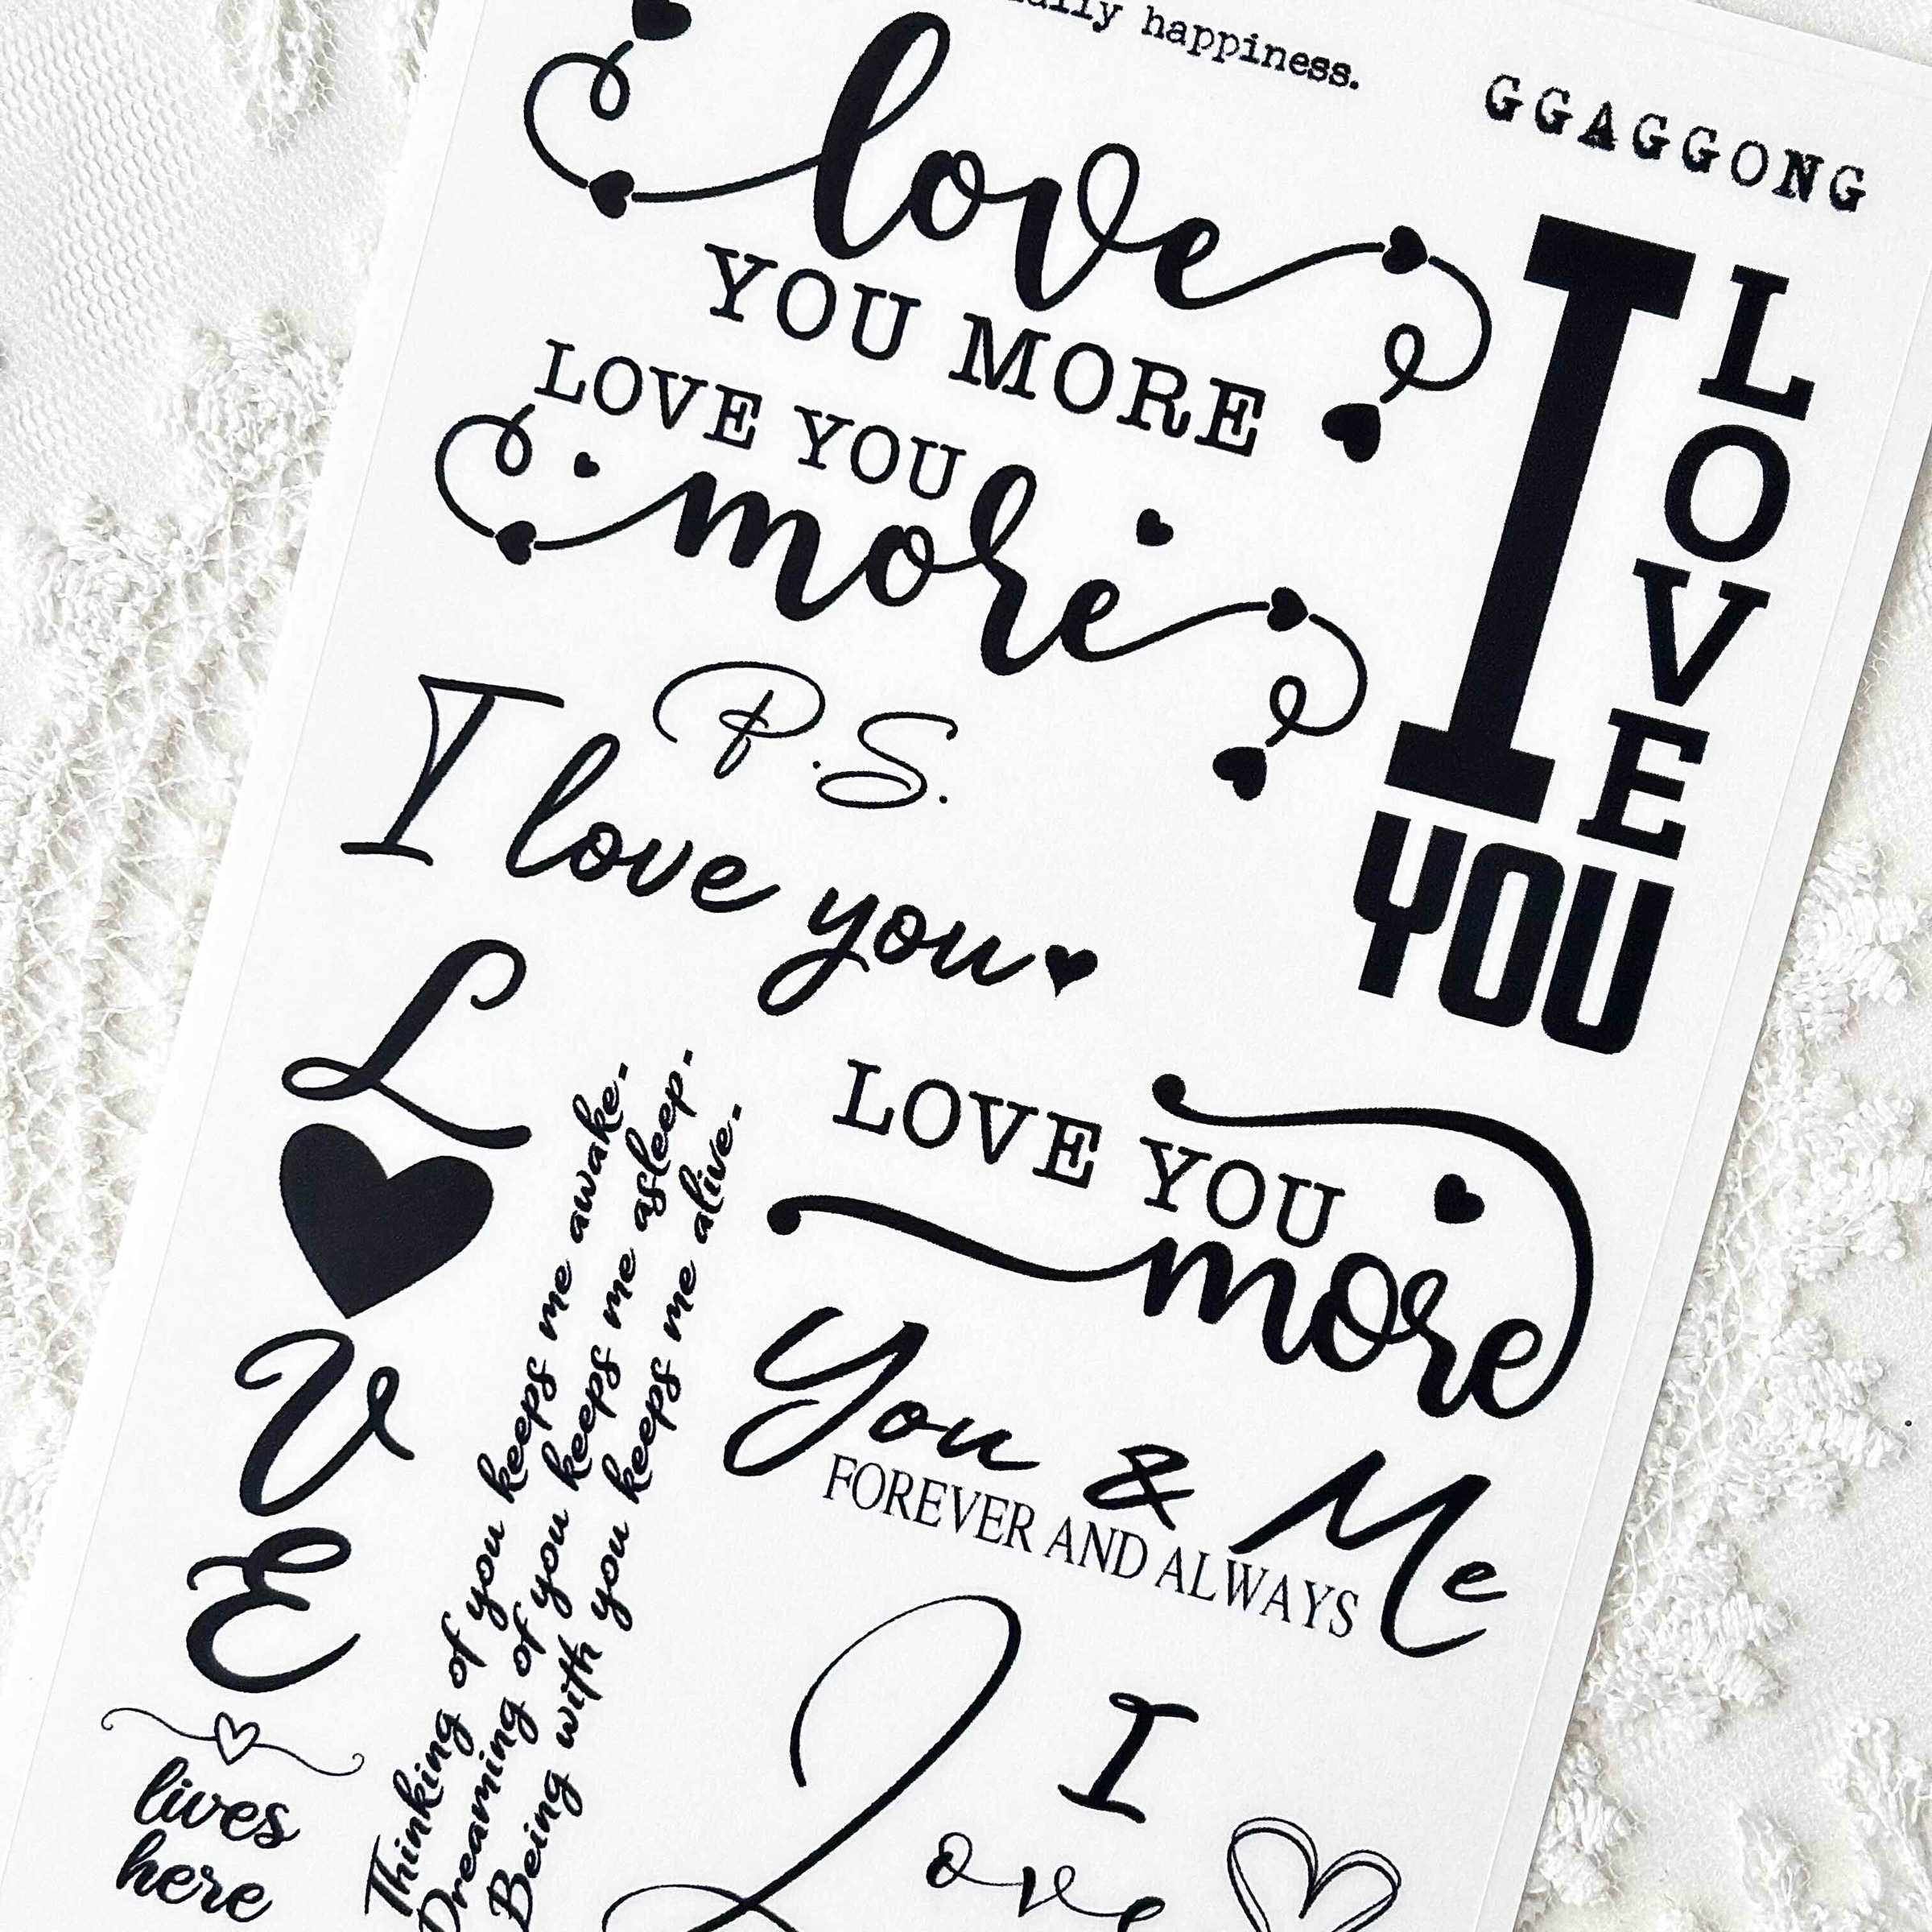 happiness.
GGAGGONG
love
YOU MORE
I
LOVE
YOU
LOVE YOU
more
P.S.
I love you
L
V
E
lives
here
Thinking of you keeps me awake.
Dreaming of you keeps me asleep.
Being with you keeps me alive.
LOVE YOU
more
You & Me
FOREVER AND ALWAYS
I
Love